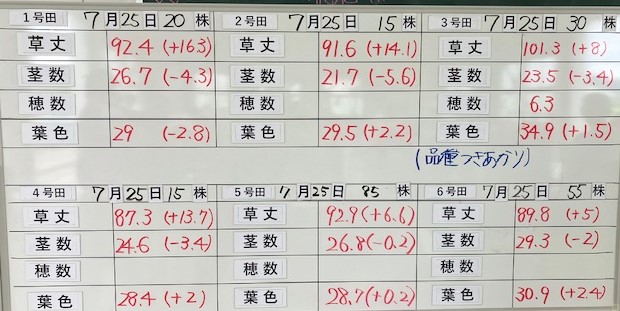 1号田 7月25日 20 株 2号田 7月25日 15 株 3号田 7月25日 30 株
草丈 92.4 (+16.3) 草丈 91.6 (+14.1) 草丈 101.3 (+8)
茎数 26.7 (-4.3) 茎数 21.7 (-5.6) 茎数 23.5 (-3.4)
穂数 穂数 穂数 6.3
葉色 29 (-2.8) 葉色 29.5 (+2.2) 葉色 34.9 (+1.5)
(品種つきあかり)
4号田 7月25日 15 株 5号田 7月25日 85 株 6号田 7月25日 55 株
草丈 87.3 (+13.7) 草丈 92.9 (+6.6) 草丈 89.8 (+5)
茎数 24.6 (-3.4) 茎数 26.8 (-0.2) 茎数 29.3 (-2)
穂数 穂数 穂数
葉色 28.4 (+2) 葉色 28.7 (+0.2) 葉色 30.9 (+2.4)